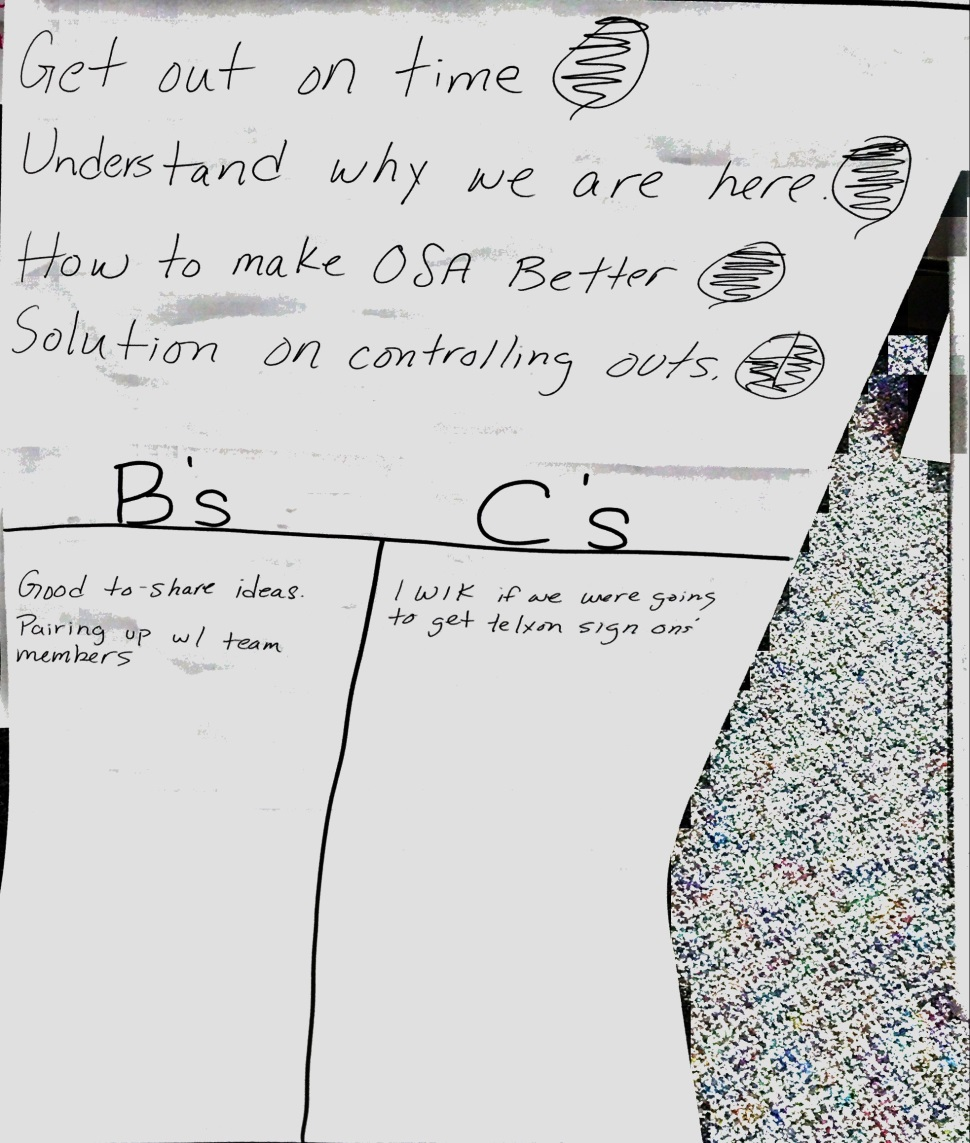 Get out on time
Understand why we are here.
How to make OSA Better
Solution on controlling outs.
B's
C's
Good to-share ideas.
Pairing up w/ team
members
I WIK if we were going
to get telxon sign ons